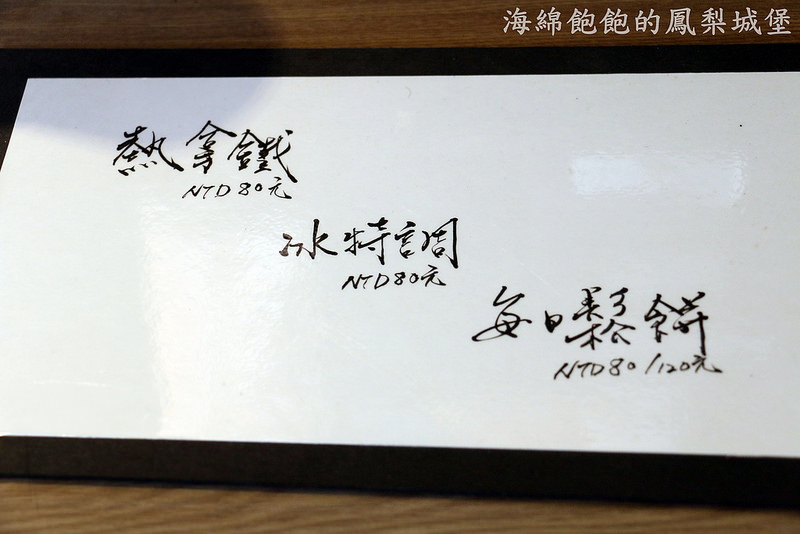 海綿飽飽的鳳梨城堡
熱拿鐵
NTD80元
冰特調
NTD80元
每日鬆餅
NTD80/120元